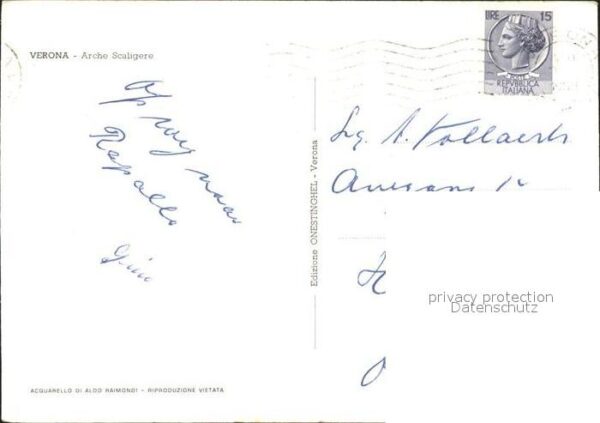 VERONA - Arche Scaligere
LIRE 15
POSTE
REPVBBLICA
ITALIANA
op weg naar
Rapallo
Edizione ONESTINGHEL - Verona
A. Vollaerts
privacy protection
Datenschutz
ACQUARELLO DI ALDO RAIMONDI - RIPRODUZIONE VIETATA